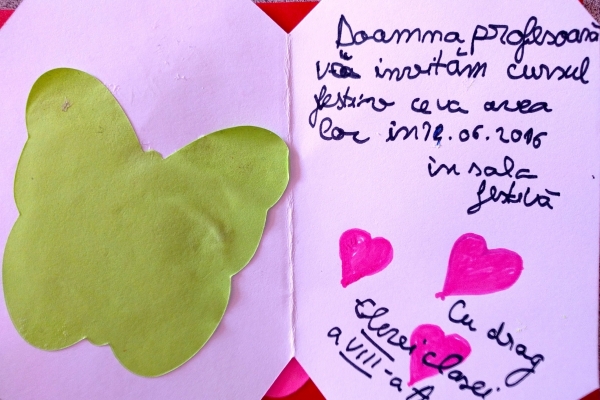 Doamna profesoară
vă invităm cursul
festiv ce va avea
loc in 12.06.2016
in sala
festivă
Cu drag
Elevei clasei
a VIII-a A